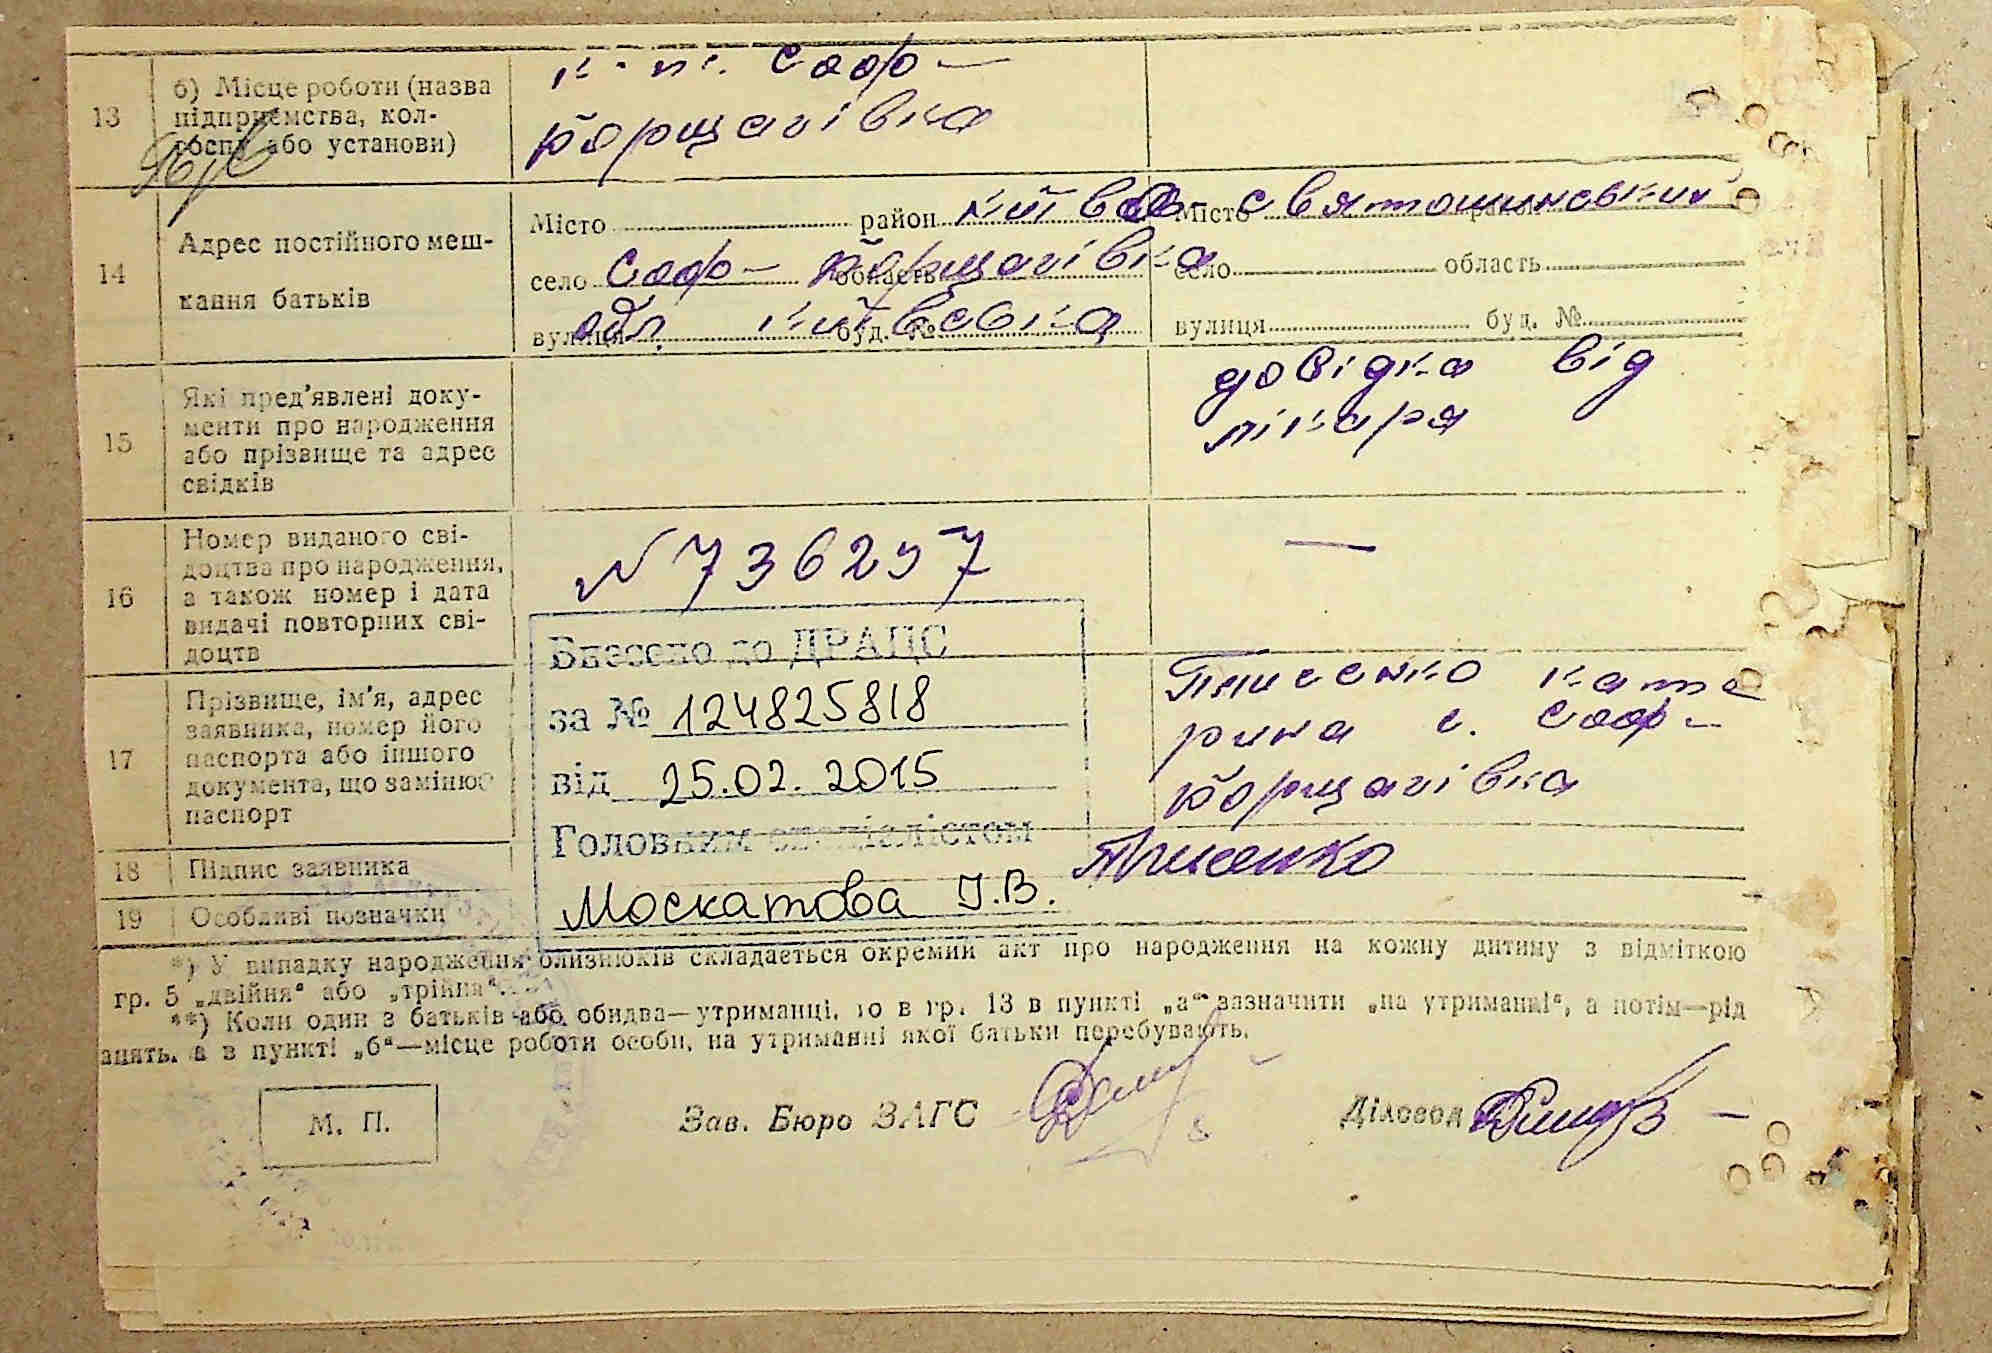 13
б) Місце роботи (назва підприємства, колгоспу або установи)
к-п. Соф-
Борщагівка
14
Адрес постійного мешкання батьків
Місто район Київсо- Місто Святошиновський
село Соф- Борщагівка область село область
вулиця обл. Київська буд. № вулиця буд. №
15
Які пред'явлені документи про народження або прізвище та адрес свідків
довідка від
лікаря
16
Номер виданого свідоцтва про народження, а також номер і дата видачі повторних свідоцтв
N 736297
—
Внесено до ДРАЦС
за № 124825818
від 25.02.2015
Головним спеціалістом
Москатова І.В.
17
Прізвище, ім'я, адрес заявника, номер його паспорта або іншого документа, що замінює паспорт
Кате
рина с. Соф-
Борщагівка
18 Підпис заявника
19 Особливі позначки
*) У випадку народження близнюків складається окремий акт про народження на кожну дитину з відміткою
гр. 5 „двійня“ або „трійня“.
**) Коли один з батьків або обидва—утриманці, то в гр. 13 в пункті „а“ зазначити „на утриманні“, а потім—рід
занять, а в пункті „б“—місце роботи особи, на утриманні якої батьки перебувають.
М. П.
Зав. Бюро ЗАГС
Діловод